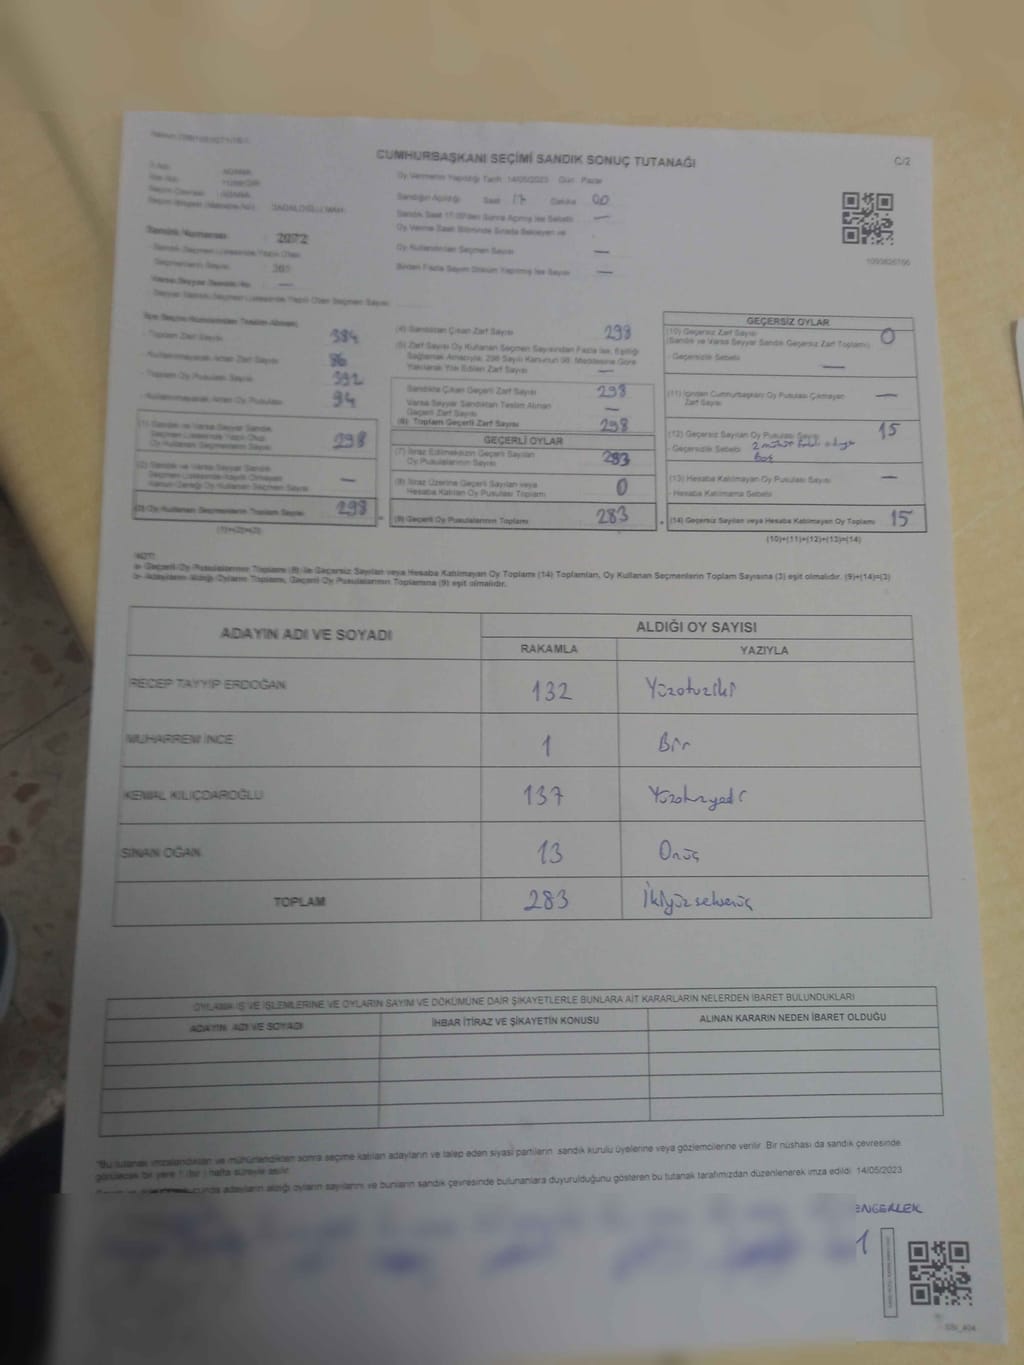 CUMHURBAŞKANI SEÇİMİ SANDIK SONUÇ TUTANAĞI
C/2
Oy Vermenin Yapıldığı Tarih 14/05/2023 Gün Pazar
Sandığın Açıldığı Saat 17 Dakika 00
Sandık Saat 17:00'den Sonra Açılmış İse Sebebi —
Oy Verme Saati Bitiminde Sırada Bekleyen ve
Oy Kullandırılan Seçmen Sayısı —
Birden Fazla Sayım Döküm Yapılmış İse Sayısı —
Sandık Numarası : 2072
- Sandık Seçmen Listesinde Yazılı Olan
Seçmenlerin Sayısı
Varsa Seyyar Sandık No —
- Seyyar Sandık Seçmen Listesinde Yazılı Olan Seçmen Sayısı
İlçe Seçim Kurulundan Teslim Alınan;
- Toplam Zarf Sayısı 384
- Kullanılmayarak Artan Zarf Sayısı 86
- Toplam Oy Pusulası Sayısı 392
- Kullanılmayarak Artan Oy Pusulası 94
(1) Sandık ve Varsa Seyyar Sandık
Seçmen Listesinde Yazılı Olup
Oy Kullanan Seçmenlerin Sayısı 298
(2) Sandık ve Varsa Seyyar Sandık
Seçmen Listesinde Kayıtlı Olmayan
Kanun Gereği Oy Kullanan Seçmen Sayısı —
(3) Oy Kullanan Seçmenlerin Toplam Sayısı 298
(1)+(2)=(3)
(4) Sandıktan Çıkan Zarf Sayısı 298
(5) Zarf Sayısı Oy Kullanan Seçmen Sayısından Fazla İse, Eşitliği
Sağlamak Amacıyla, 298 Sayılı Kanunun 98. Maddesine Göre
Yakılarak Yok Edilen Zarf Sayısı —
Sandıkta Çıkan Geçerli Zarf Sayısı 298
Varsa Seyyar Sandıktan Teslim Alınan
Geçerli Zarf Sayısı —
(6) Toplam Geçerli Zarf Sayısı 298
GEÇERLİ OYLAR
(7) İtiraz Edilmeksizin Geçerli Sayılan
Oy Pusulalarının Sayısı 283
(8) İtiraz Üzerine Geçerli Sayılan veya
Hesaba Katılan Oy Pusulası Toplamı 0
(9) Geçerli Oy Pusulalarının Toplamı 283
GEÇERSİZ OYLAR
(10) Geçersiz Zarf Sayısı 0
(Sandık ve Varsa Seyyar Sandık Geçersiz Zarf Toplamı)
- Geçersizlik Sebebi —
(11) İçinden Cumhurbaşkanı Oy Pusulası Çıkmayan
Zarf Sayısı —
(12) Geçersiz Sayılan Oy Pusulası Sayısı 15
- Geçersizlik Sebebi 2 mühür
(13) Hesaba Katılmayan Oy Pusulası Sayısı —
- Hesaba Katılmama Sebebi
(14) Geçersiz Sayılan veya Hesaba Katılmayan Oy Toplamı 15
(10)+(11)+(12)+(13)=(14)
NOT:
a- Geçerli Oy Pusulalarının Toplamı (9) ile Geçersiz Sayılan veya Hesaba Katılmayan Oy Toplamı (14) Toplamları, Oy Kullanan Seçmenlerin Toplam Sayısına (3) eşit olmalıdır. (9)+(14)=(3)
b- Adayların Aldığı Oyların Toplamı, Geçerli Oy Pusulalarının Toplamına (9) eşit olmalıdır.
ADAYIN ADI VE SOYADI
ALDIĞI OY SAYISI
RAKAMLA YAZIYLA
RECEP TAYYİP ERDOĞAN 132 Yüzotuziki
MUHARREM İNCE 1 Bir
KEMAL KILIÇDAROĞLU 137 Yüzotuzyedi
SİNAN OĞAN 13 Onüç
TOPLAM 283 İkiyüzseksenüç
OYLAMA İŞ VE İŞLEMLERİNE VE OYLARIN SAYIM VE DÖKÜMÜNE DAİR ŞİKAYETLERLE BUNLARA AİT KARARLARIN NELERDEN İBARET BULUNDUKLARI
ADAYIN ADI VE SOYADI İHBAR İTİRAZ VE ŞİKAYETİN KONUSU ALINAN KARARIN NEDEN İBARET OLDUĞU
"Bu tutanak imzalandıktan ve mühürlendikten sonra seçime katılan adayların ve talep eden siyasi partilerin sandık kurulu üyelerine veya gözlemcilerine verilir. Bir nüshası da sandık çevresinde
görülecek bir yere 1 (bir) hafta süreyle asılır.
adayların aldığı oyların sayılarını ve bunların sandık çevresinde bulunanlara duyurulduğunu gösteren bu tutanak tarafımızdan düzenlenerek imza edildi. 14/05/2023